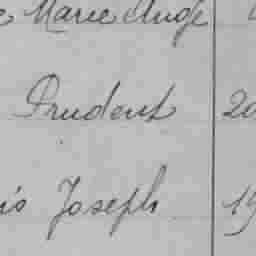 Marie Ange
Prudent 20
is Joseph 19